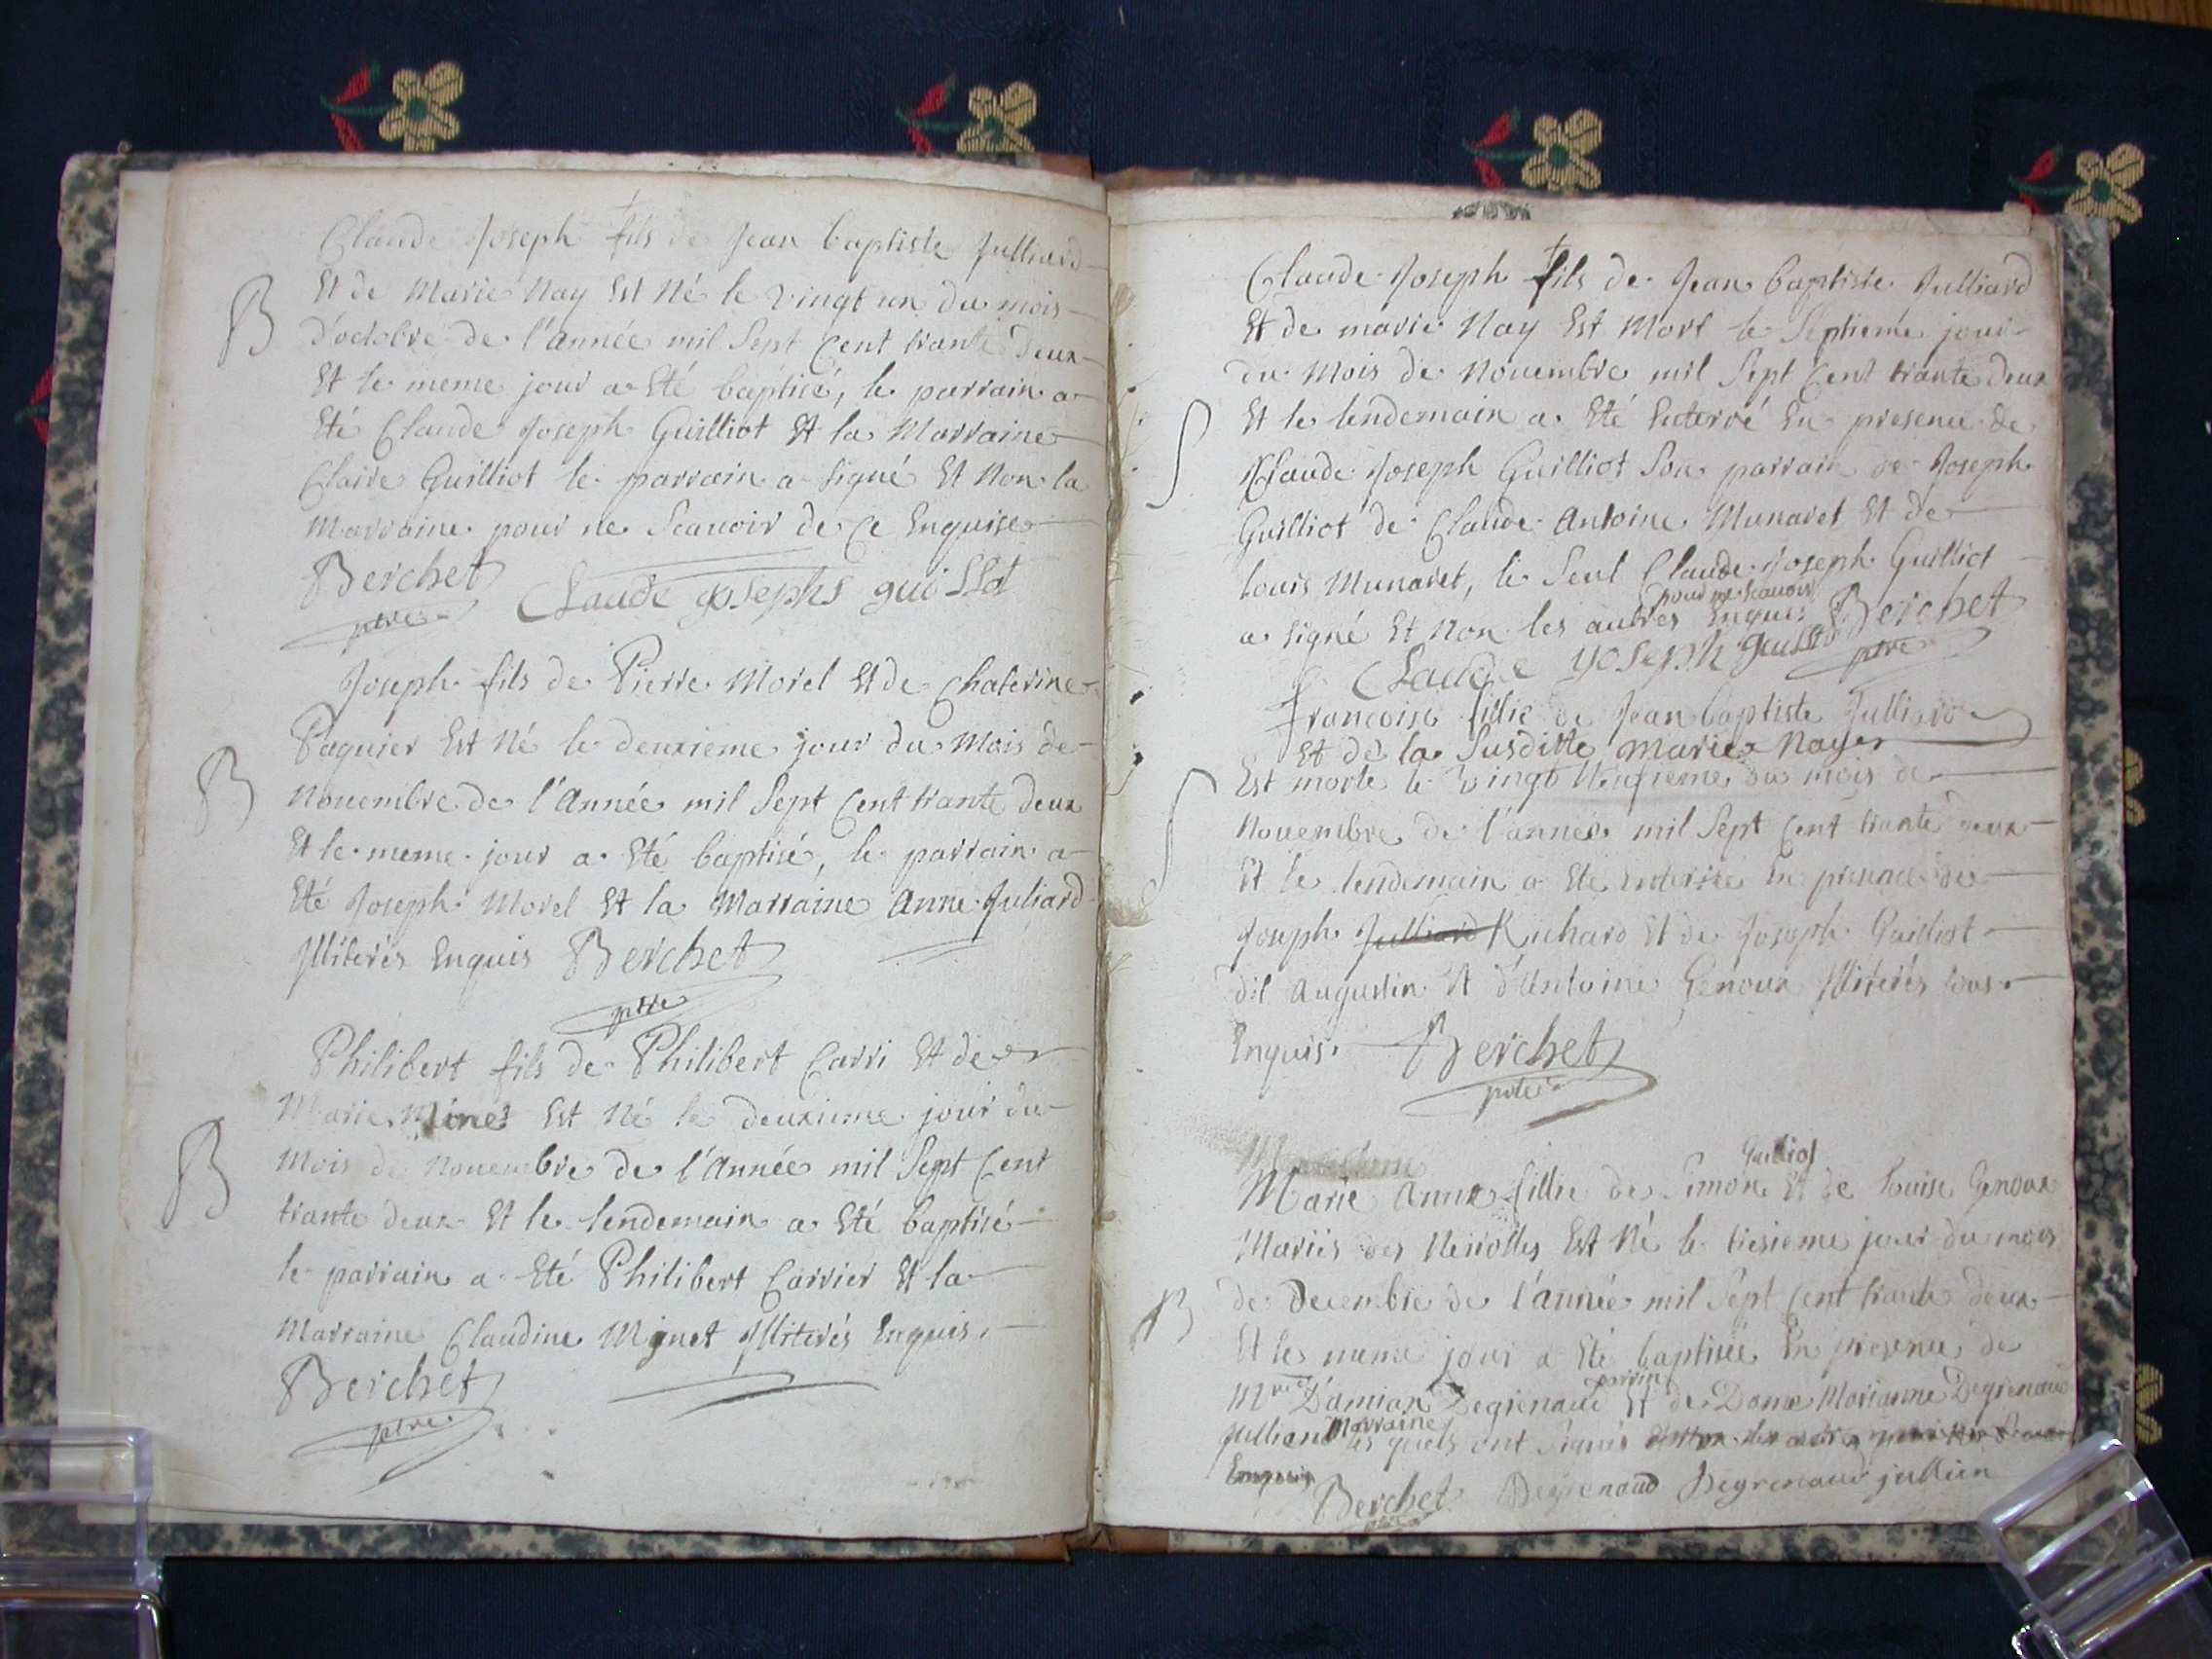 Claude Joseph fils de Jean baptiste Julliard
Et de Marie Nay Est Né le vingt un du mois
B
d'octobre de l'année mil Sept Cent trante deux
Et le meme jour a Eté baptisé, le parrain a
Eté Claude Joseph Guilliot Et la Marraine
Claire Guilliot le parrain a signé Et Non la
Marraine pour ne Scauoir de Ce Enquise
Berchet Claude Josephs guillot
ptre
Joseph fils de Pierre Morel Et de Chaterine
Paquier Est Né le deuxieme jour du Mois de
B
Nouembre de l'Année mil Sept Cent trante deux
Et le meme jour a Eté baptisé, le parrain a
Eté Joseph Morel Et la Marraine Anne Juliard
Illiterés Enquis Berchet
ptre
Philibert fils de Philibert Carri Et de
Marie Minet Est Né le deuxieme jour du
B
Mois de Nouembre de l'Année mil Sept Cent
trante deux Et le lendemain a Eté baptisé
le parrain a Eté Philibert Carrier Et la
Marraine Claudine Mignet Illiterés Enquis
Berchet
ptre
Claude Joseph fils de Jean baptiste Julliard
Et de marie Nay Est Mort le Septieme jour
du Mois de Nouembre mil Sept Cent trante deux
S
Et le lendemain a Eté Enterré En presence de
Claude Joseph Guilliot Son parrain de Joseph
Guilliot de Claude Antoine Munaret Et de
louis Munaret, le Seul Claude Joseph Guilliot
pour ne Scauoir
a signé Et Non les autres Enquis Berchet
Claude yoseph guillot ptre
francoise fillie de Jean baptiste Julliard
Et de la Susditte Marie Nay
Est morte le vingt Neufieme du mois de
S
Nouembre de l'année mil Sept Cent trante deux
Et le lendemain a Eté enterrée En presence de
Joseph Julliard Richard Et de Joseph Guilliot
dit Augustin Et d'Antoine Genoux Illiterés tous
Enquis Berchet
ptre
Guilliot
Marie Anne fillie de Simon Et de louise Genoux
Mariés des Neirolles Est Né le tiesieme jour du mois
B
de Decembre de l'année mil Sept Cent trante deux
Et les meme jour a Eté baptisée En presence de
parrin
Mre Damian Degrenaud Et de Dame Marianne Degrenaud
Marraine
Jullien les quels ont signés
Enquis
Berchet Degrenaud Degrenaud jullien
ptre